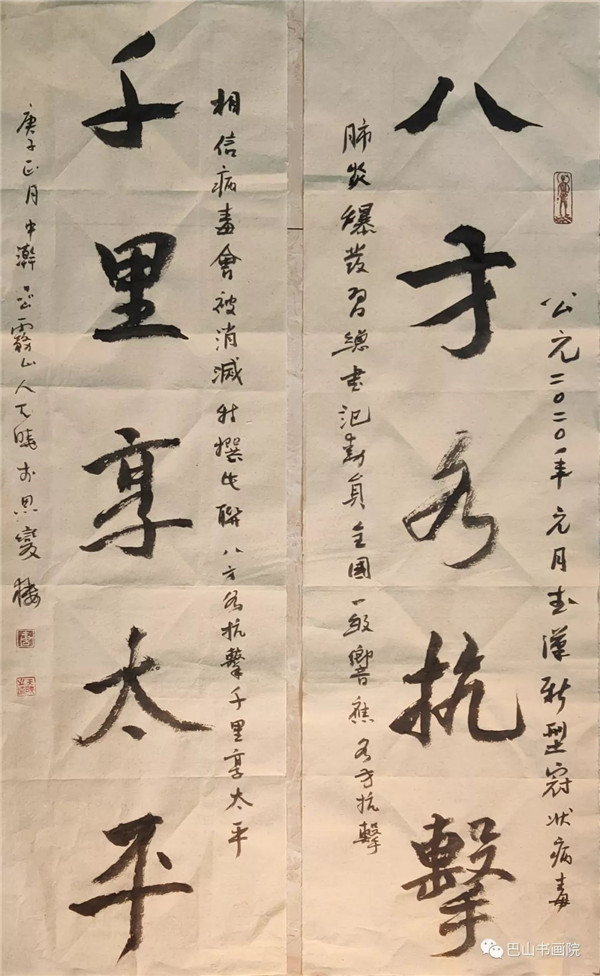 公元二〇二〇年元月武漢新型冠狀病毒
八方各抗擊
肺炎爆發習總書記動員全國一級響應各方抗擊
相信病毒會被消滅特撰此聯八方各抗擊千里享太平
千里享太平
庚子正月中澣霧山人天曉於思變樓
巴山书画院